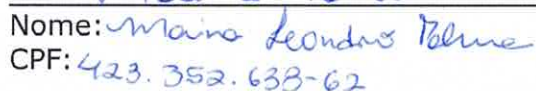 Nome: Maina Leandro Palma
CPF: 423.352.638-62